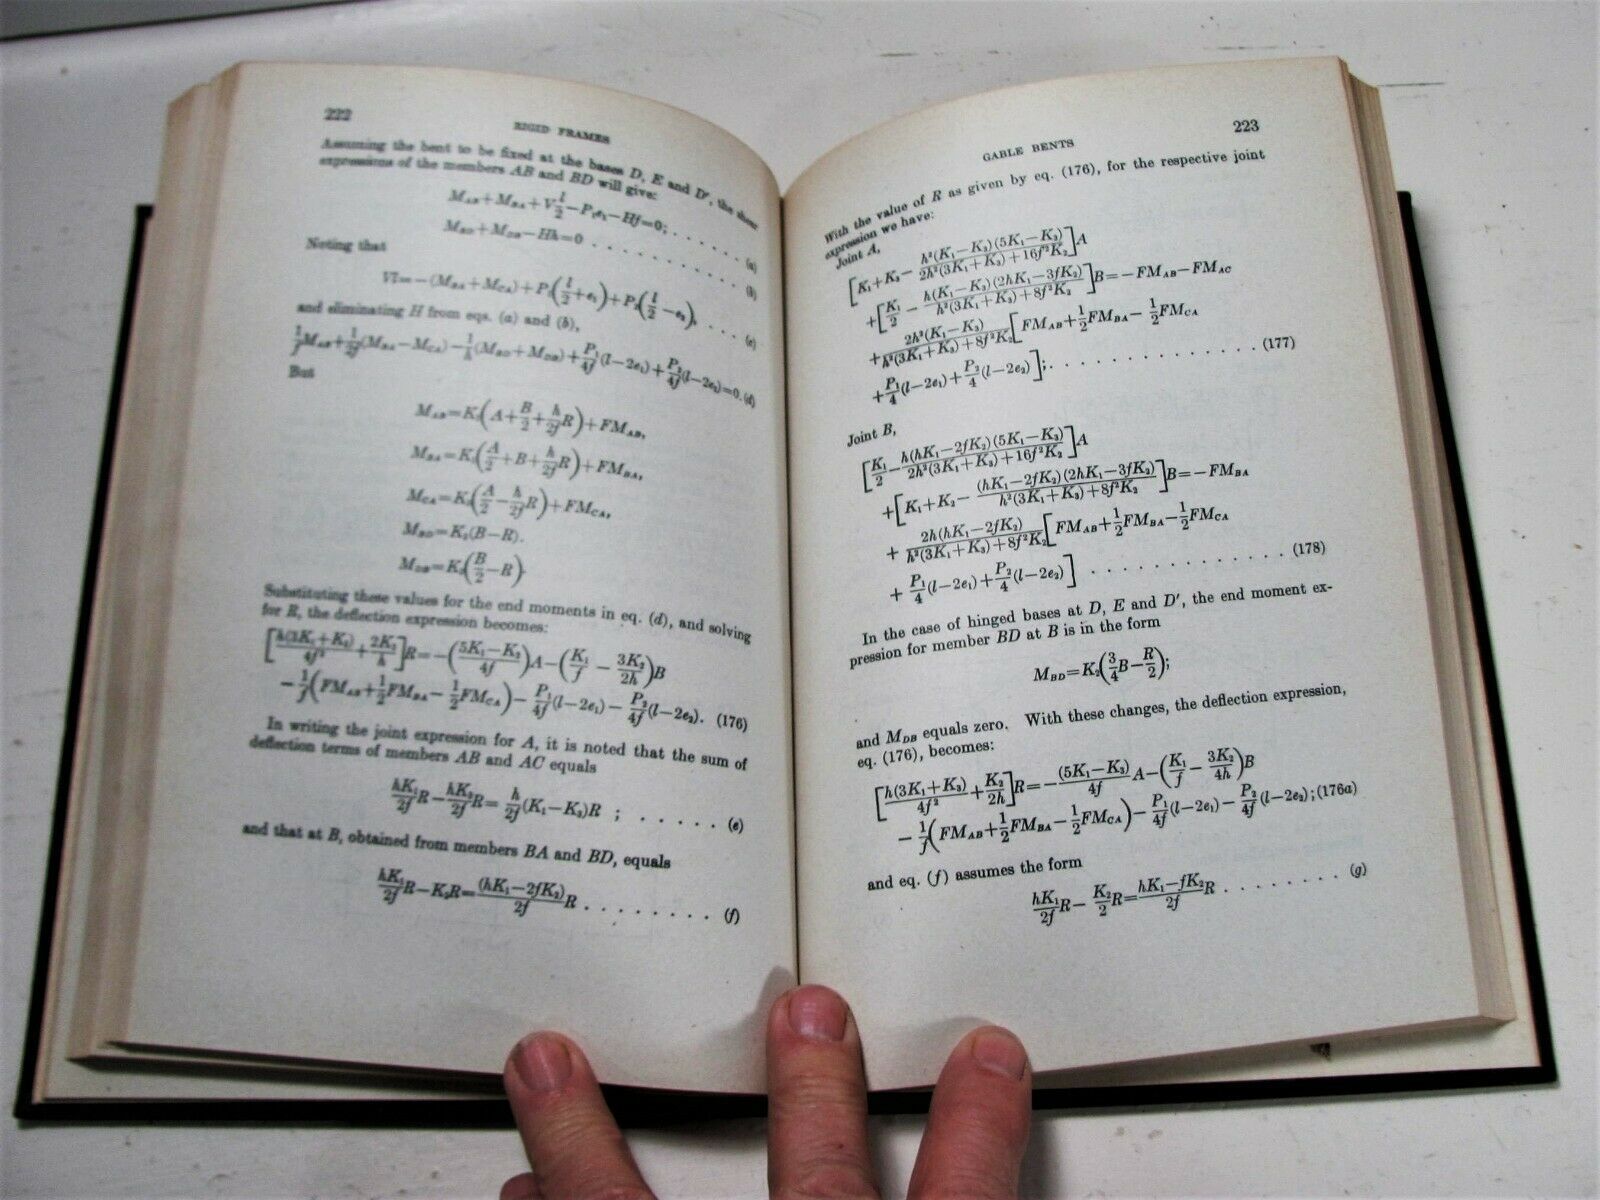 222
RIGID FRAMES
Assuming the bent to be fixed at the bases D, E and D', the shear
expressions of the members AB and BD will give:
M_AB+M_BA+V l/2−P₁e₁−Hf=0; . . . . . . (a)
M_BD+M_DB−Hh=0 . . . . . . . . . . . (b)
Noting that
Vl=−(M_BA+M_CA)+P₁(l/2+e₁)+P₂(l/2−e₂), . . . . (c)
and eliminating H from eqs. (a) and (b),
1/f M_AB+1/2f(M_BA−M_CA)−1/h(M_BD+M_DB)+P₁/4f(l−2e₁)+P₂/4f(l−2e₂)=0. (d)
But
M_AB=K₁(A+B/2+h/2f R)+FM_AB,
M_BA=K₁(A/2+B+h/2f R)+FM_BA,
M_CA=K₃(A/2−h/2f R)+FM_CA,
M_BD=K₂(B−R).
M_DB=K₂(B/2−R).
Substituting these values for the end moments in eq. (d), and solving
for R, the deflection expression becomes:
[h(3K₁+K₃)/4f²+2K₂/h]R=−(5K₁−K₃/4f)A−(K₁/f−3K₂/2h)B
−1/f(FM_AB+1/2FM_BA−1/2FM_CA)−P₁/4f(l−2e₁)−P₂/4f(l−2e₂). (176)
In writing the joint expression for A, it is noted that the sum of
deflection terms of members AB and AC equals
hK₁/2f R−hK₃/2f R=h/2f(K₁−K₃)R ; . . . . . (e)
and that at B, obtained from members BA and BD, equals
hK₁/2f R−K₂R=(hK₁−2fK₂)/2f R . . . . . . . . (f)
223
GABLE BENTS
With the value of R as given by eq. (176), for the respective joint
expression we have:
Joint A,
[K₁+K₃−h²(K₁−K₃)(5K₁−K₃)/2h²(3K₁+K₃)+16f²K₂]A
+[K₁/2−h(K₁−K₃)(2hK₁−3fK₂)/h²(3K₁+K₃)+8f²K₂]B=−FM_AB−FM_AC
+2h²(K₁−K₃)/h²(3K₁+K₃)+8f²K₂[FM_AB+1/2FM_BA−1/2FM_CA
+P₁/4(l−2e₁)+P₂/4(l−2e₂)]; . . . . . . . . . . . . . . (177)
Joint B,
[K₁/2−h(hK₁−2fK₂)(5K₁−K₃)/2h²(3K₁+K₃)+16f²K₂]A
+[K₁+K₂−(hK₁−2fK₂)(2hK₁−3fK₂)/h²(3K₁+K₃)+8f²K₂]B=−FM_BA
+2h(hK₁−2fK₂)/h²(3K₁+K₃)+8f²K₂[FM_AB+1/2FM_BA−1/2FM_CA
+P₁/4(l−2e₁)+P₂/4(l−2e₂)] . . . . . . . . . . . . . (178)
In the case of hinged bases at D, E and D', the end moment ex-
pression for member BD at B is in the form
M_BD=K₂(3/4B−R/2);
and M_DB equals zero. With these changes, the deflection expression,
eq. (176), becomes:
[h(3K₁+K₃)/4f²+K₂/2h]R=−(5K₁−K₃)/4f A−(K₁/f−3K₂/4h)B
−1/f(FM_AB+1/2FM_BA−1/2FM_CA)−P₁/4f(l−2e₁)−P₂/4f(l−2e₂); (176a)
and eq. (f) assumes the form
hK₁/2f R−K₂/2 R=hK₁−fK₂/2f R . . . . . . . . (g)